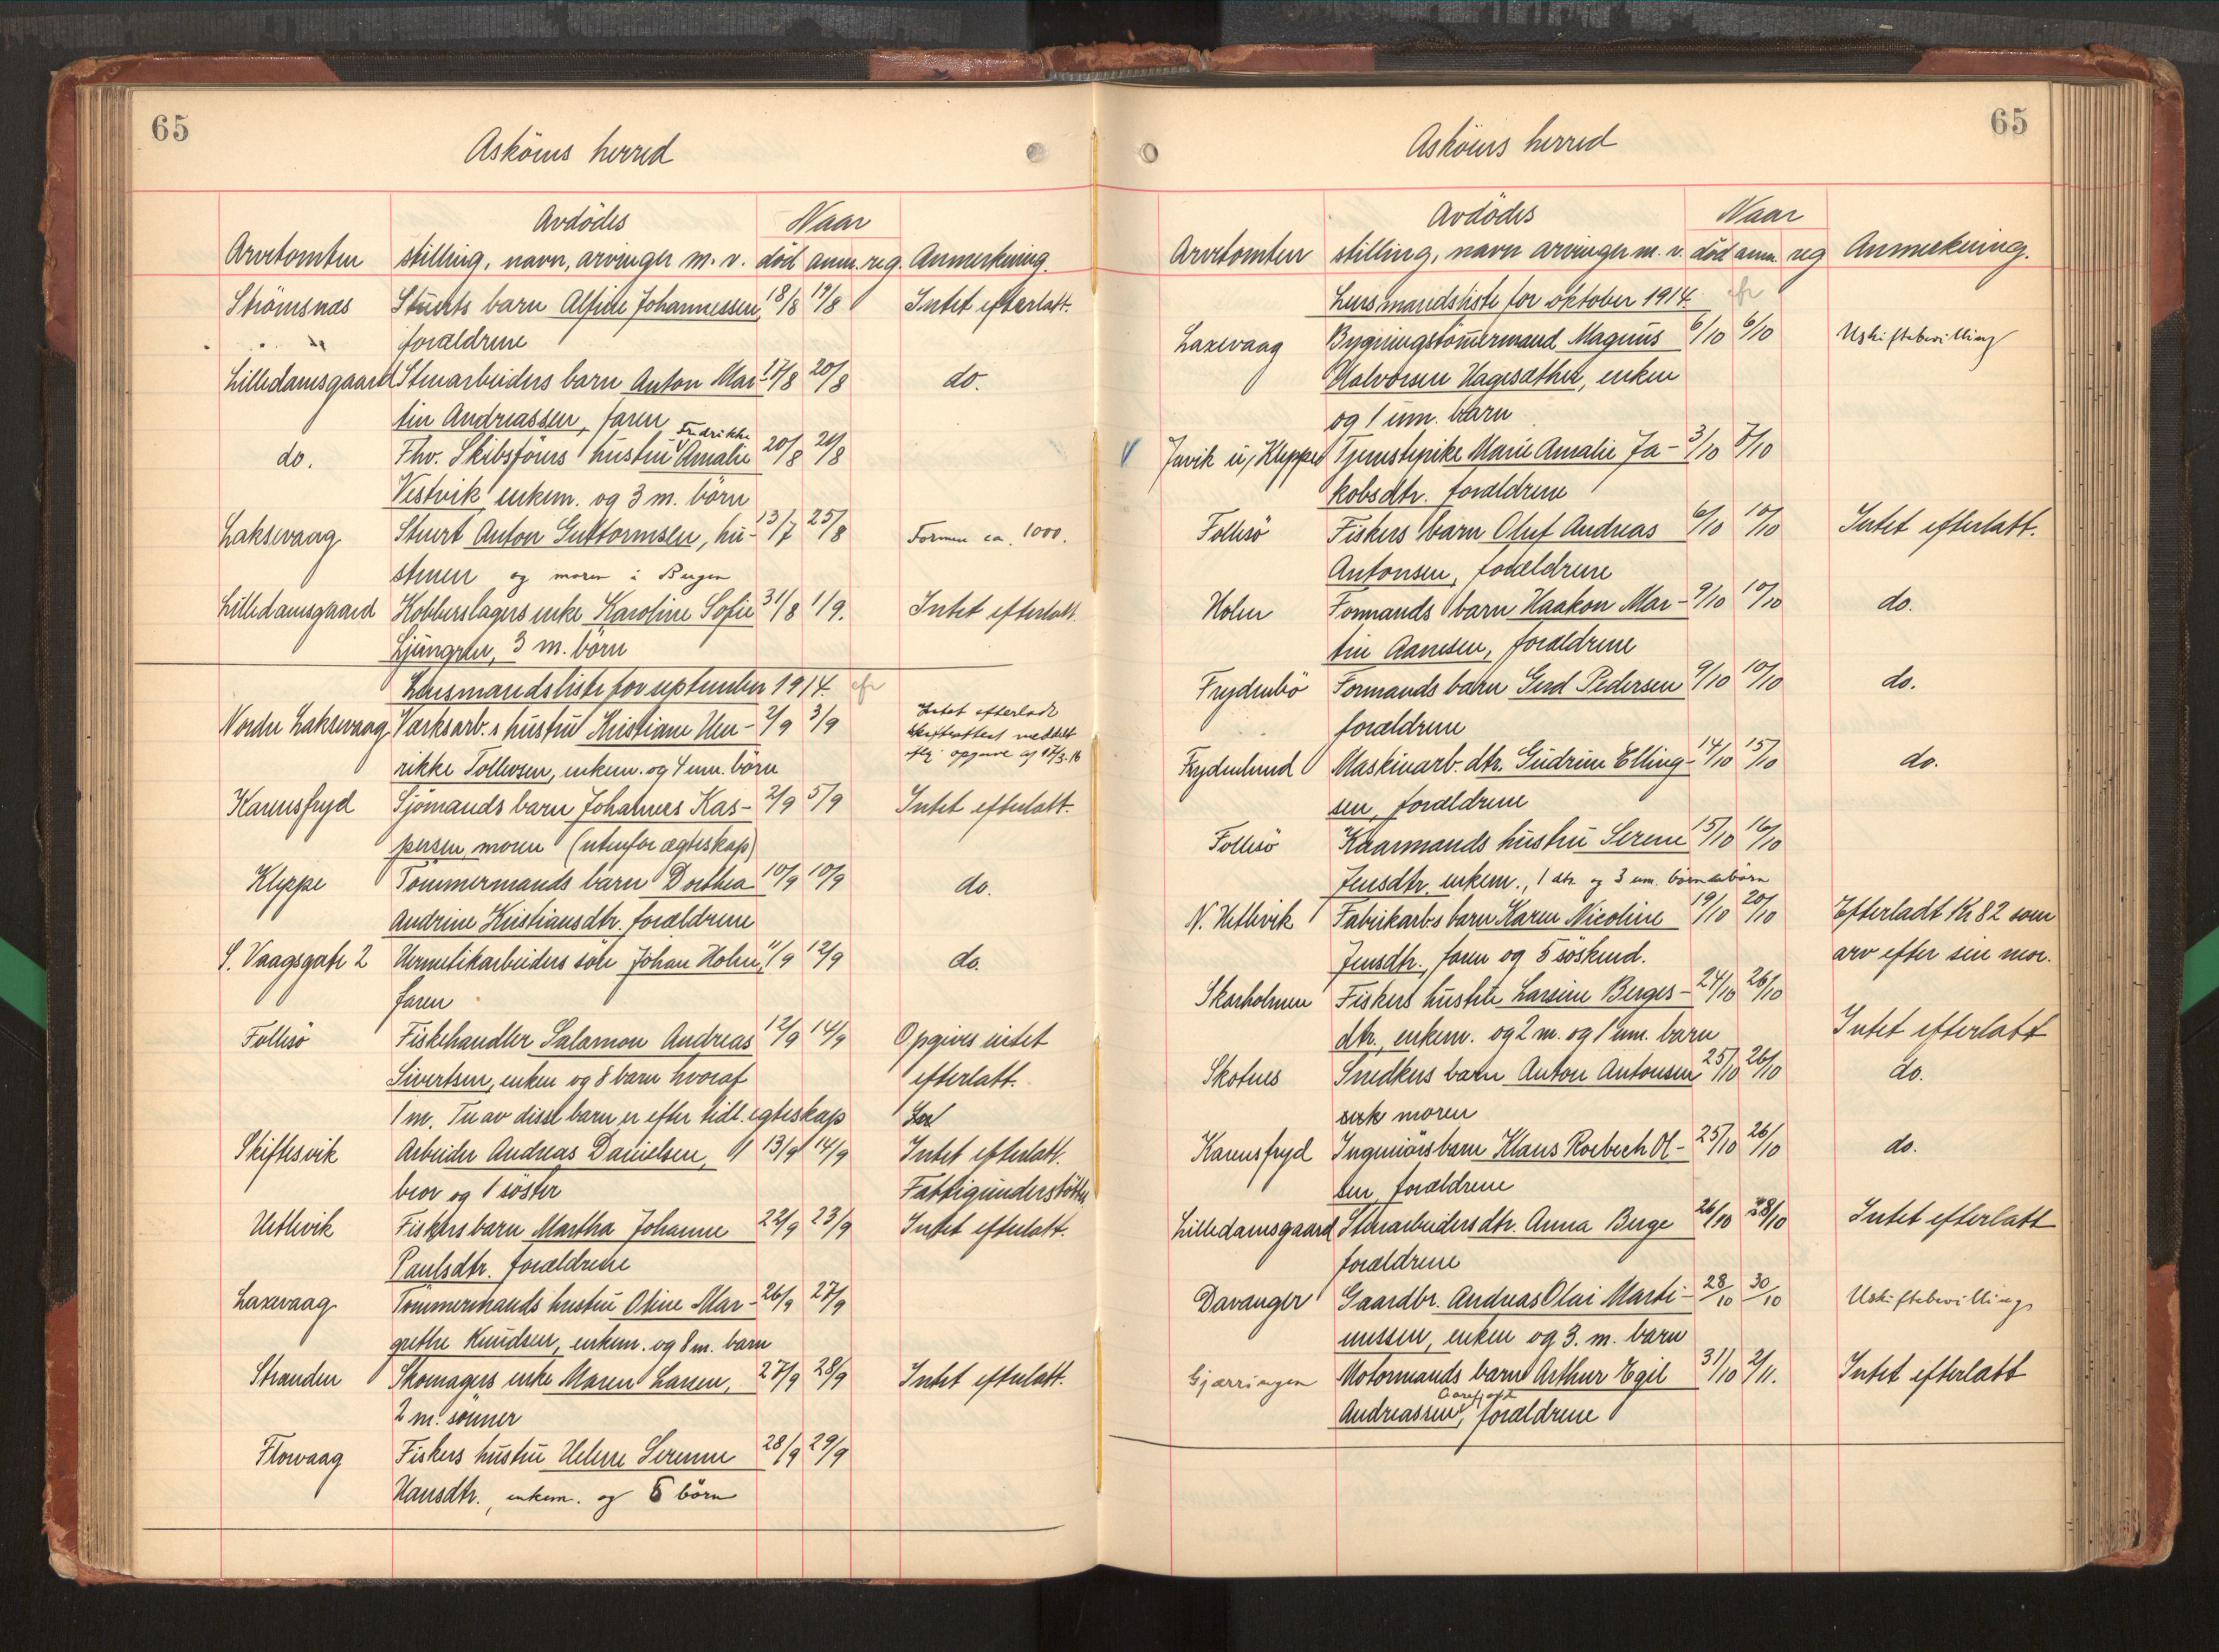 65
Askøens herred
Avdødes Naar
Arvetomten stilling, navn, arvinger m. v. død anm. reg. Anmerkning.
Strømsnes Stuerts barn Alfine Johannessen, 18/8 19/8 Intet efterlatt.
forældrene
Lilledamsgaard Stenarbeiders barn Anton Mar- 17/8 20/8 do.
tin Andreassen, faren
Fredrikke
do. Fhv. Skibsførers hustru Amalie 20/8 20/8
Vestvik enkem. og 3 m. børn
Laksevaag Stuert Anton Guttormsen, hu- 13/7 25/8 Formue ca. 1000.
struen og moren i Bergen
Lilledamsgaard Kobberslagers enke Karoline Sofie 31/8 1/9. Intet efterlatt.
Ljungren, 3 m. børn
Lensmandsliste for september 1914.
Nordre Laksevaag Værksarb.s hustru Kristiane Hen- 2/9 3/9 Intet efterladt
rikke Tollevsen, enkem. og 4 um. børn
Skifteattest meddelt
eftr. opgave af 17/3-16
Karensfryd Sjømands barn Johannes Kas- 2/9 5/9 Intet efterlatt.
persen, moren (utenfor ægteskap)
Kleppe Tømmermands barn Dorthea 10/9 10/9 do.
Andrine Kristiansdtr. forældrene
S. Vaagsgate 2 Hermetikarbeiders søn Johan Holm, 11/9 12/9 do.
faren
Follesø Fiskehandler Salamon Andreas 12/9 14/9 Opgives intet
Sivertsen, enken og 8 barn hvoraf efterlatt.
1 m. Tu av disse barn er efter tidl. egteskap
Skiftesvik Arbeider Andreas Danielsen, 1 13/9 14/9 Intet efterlatt.
bror og 1 søster Fattigunderstøttet
Hetlevik Fiskers barn Martha Johanne 22/9 23/9 Intet efterlatt.
Paulsdtr. forældrene
Laxevaag Tømmermands hustru Oline Mar- 26/9 27/9
grethe Knudsen, enkem. og 8 m. barn
Stranden Skomagers enke Maren Larsen, 27/9 28/9 Intet efterlatt.
2 m. sønner
Florvaag Fiskers hustru Helene Serenne 28/9 29/9
Hansdtr., enkem. og 5 børn
65
Askøens herred
Avdødes Naar
Arvetomten stilling, navn arvinger m. v. død anm. reg Anmerkning.
Lensmandsliste for oktober 1914.
Laxevaag Bygningstømmermand Magnus 6/10 6/10 Uskiftebevilling
Halvorsen Hagesæther, enken
og 1 um. barn
V Juvik u/ Kleppe Tjenestepike Marie Amalie Ja- 3/10 7/10
kobsdtr. forældrene
Follesø Fiskers barn Oluf Andreas 6/10 10/10 Intet efterlatt.
Antonsen, forældrene
Holen Formands barn Haakon Mar- 9/10 10/10 do.
tin Aanesen, forældrene
Frydenbø Formands barn Gerd Pedersen 9/10 10/10 do.
forældrene
Frydenlund Maskinarb. dtr. Gudrun Elling- 14/10 15/10 do.
sen, forældrene
Follesø Kaarmands hustru Serene 15/10 16/10
Jensdtr. enkem., 1 dtr. og 3 um. børnebørn
N. Hetlevik Fabrikarb.s barn Karen Nicoline 19/10 20/10 Efterladt Kr 82 som
Jensdtr., faren og 5 søskend. arv efter sin mor.
Skarholmen Fiskers hustru Larsine Berges- 24/10 26/10 Intet efterlatt
dtr., enkem. og 2 m. og 1 um. barn
Skotnes Snedkers barn Anton Antonsen 25/10 26/10 do.
moren
Karensfryd Ingeniørs barn Klaus Roebech Ol- 25/10 26/10 do.
sen, forældrene
Lilledamsgaard Stenarbeiders dtr. Anna Berge 26/10 28/10 Intet efterlatt
forældrene
Davanger Gaardbr. Andreas Olai Marti- 28/10 30/10 Uskiftebevilling
nussen, enken og 3. m. barn
Gjærringen Motormands barn Arthur Egil 31/10 2/11. Intet efterlatt
Andreassen, forældrene